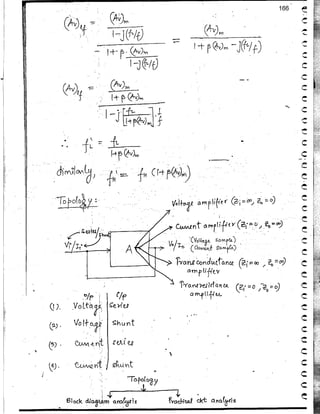 166
(Av)lf = (Av)m / 1-j(fL/f) / 1+β.(Av)m / 1-j(fL/f) = (Av)m / 1+β(Av)m -j(fL/f)
(Av)lf = (Av)m / 1+β(Av)m / 1-j [fL / 1+β(Av)m] . 1/f
∴ fL' = fL / 1+β(Av)m
Similarly, fH' = fH (1+β(Av)m)
Topology :
Voltage amplifier (Zi=∞, Zo=0)
Current amplifier (Zi=0, Zo=∞)
Series/
Vi/Ii
A
(Voltage Sample)
Vo/Io (Current Sample)
Transconductance (Zi=∞, Zo=∞)
amplifier
Transresistance (Zi=0, Zo=0)
amplifier
o/p i/p
(1). Voltage Series
(2). Voltage Shunt
(3). Current Series
(4). Current Shunt
Topology
Block diagram analysis Practical ckt analysis